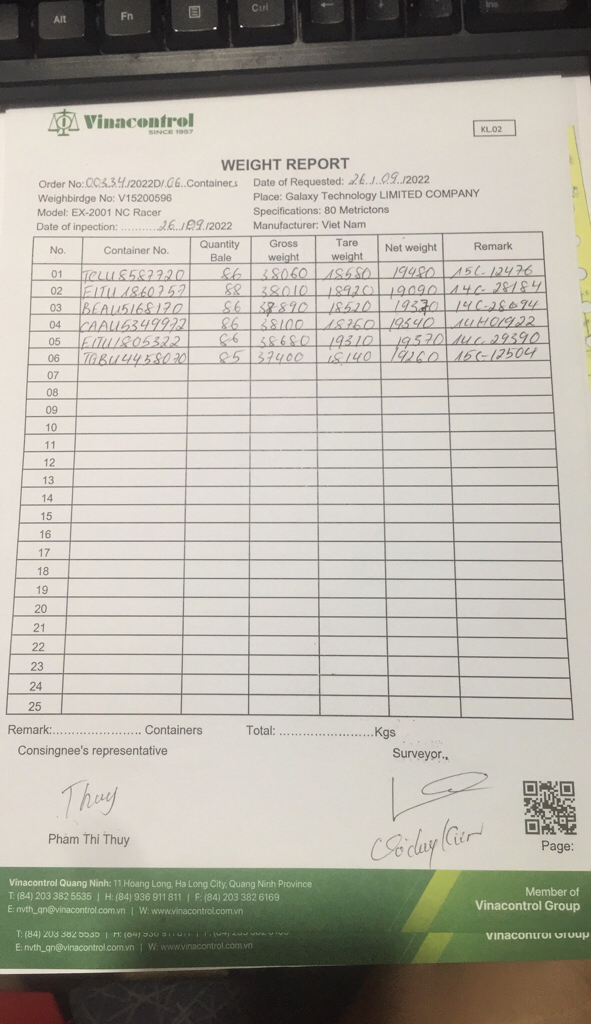 Alt
Fn
Ctrl
Ins
Vinacontrol
SINCE 1957
KL.02
WEIGHT REPORT
Order No:00334/2022D/06..Containers Date of Requested: 26/09/2022
Weighbirdge No: V15200596 Place: Galaxy Technology LIMITED COMPANY
Model: EX-2001 NC Racer Specifications: 80 Metrictons
Date of inpection: ...........26/09/2022 Manufacturer: Viet Nam
No. Container No. Quantity Bale Gross weight Tare weight Net weight Remark
01 TCLU8587720 86 38060 18580 19480 15C-12476
02 FITU1860757 88 38010 18920 19090 14C-28184
03 BEAU5168170 86 37890 18520 19370 14C-28694
04 CAAU5349972 86 38100 18760 19340 14H01922
05 FITU1805322 86 38680 19310 19370 14C-29390
06 TGBU4458070 85 37400 18140 19260 15C-12504
07
08
09
10
11
12
13
14
15
16
17
18
19
20
21
22
23
24
25
Remark:....................... Containers Total: ........................Kgs
Consingnee's representative Surveyor..
Thuy
Pham Thi Thuy
Page:
Vinacontrol Quang Ninh: 11 Hoang Long, Ha Long City, Quang Ninh Province
T: (84) 203 382 5535 | H: (84) 936 911 811 | F: (84) 203 382 6169
E: nvth_qn@vinacontrol.com.vn | W: www.vinacontrol.com.vn
Member of
Vinacontrol Group
T: (84) 203 382 5535
Vinacontrol Group
E: nvth_qn@vinacontrol.com.vn | W: www.vinacontrol.com.vn